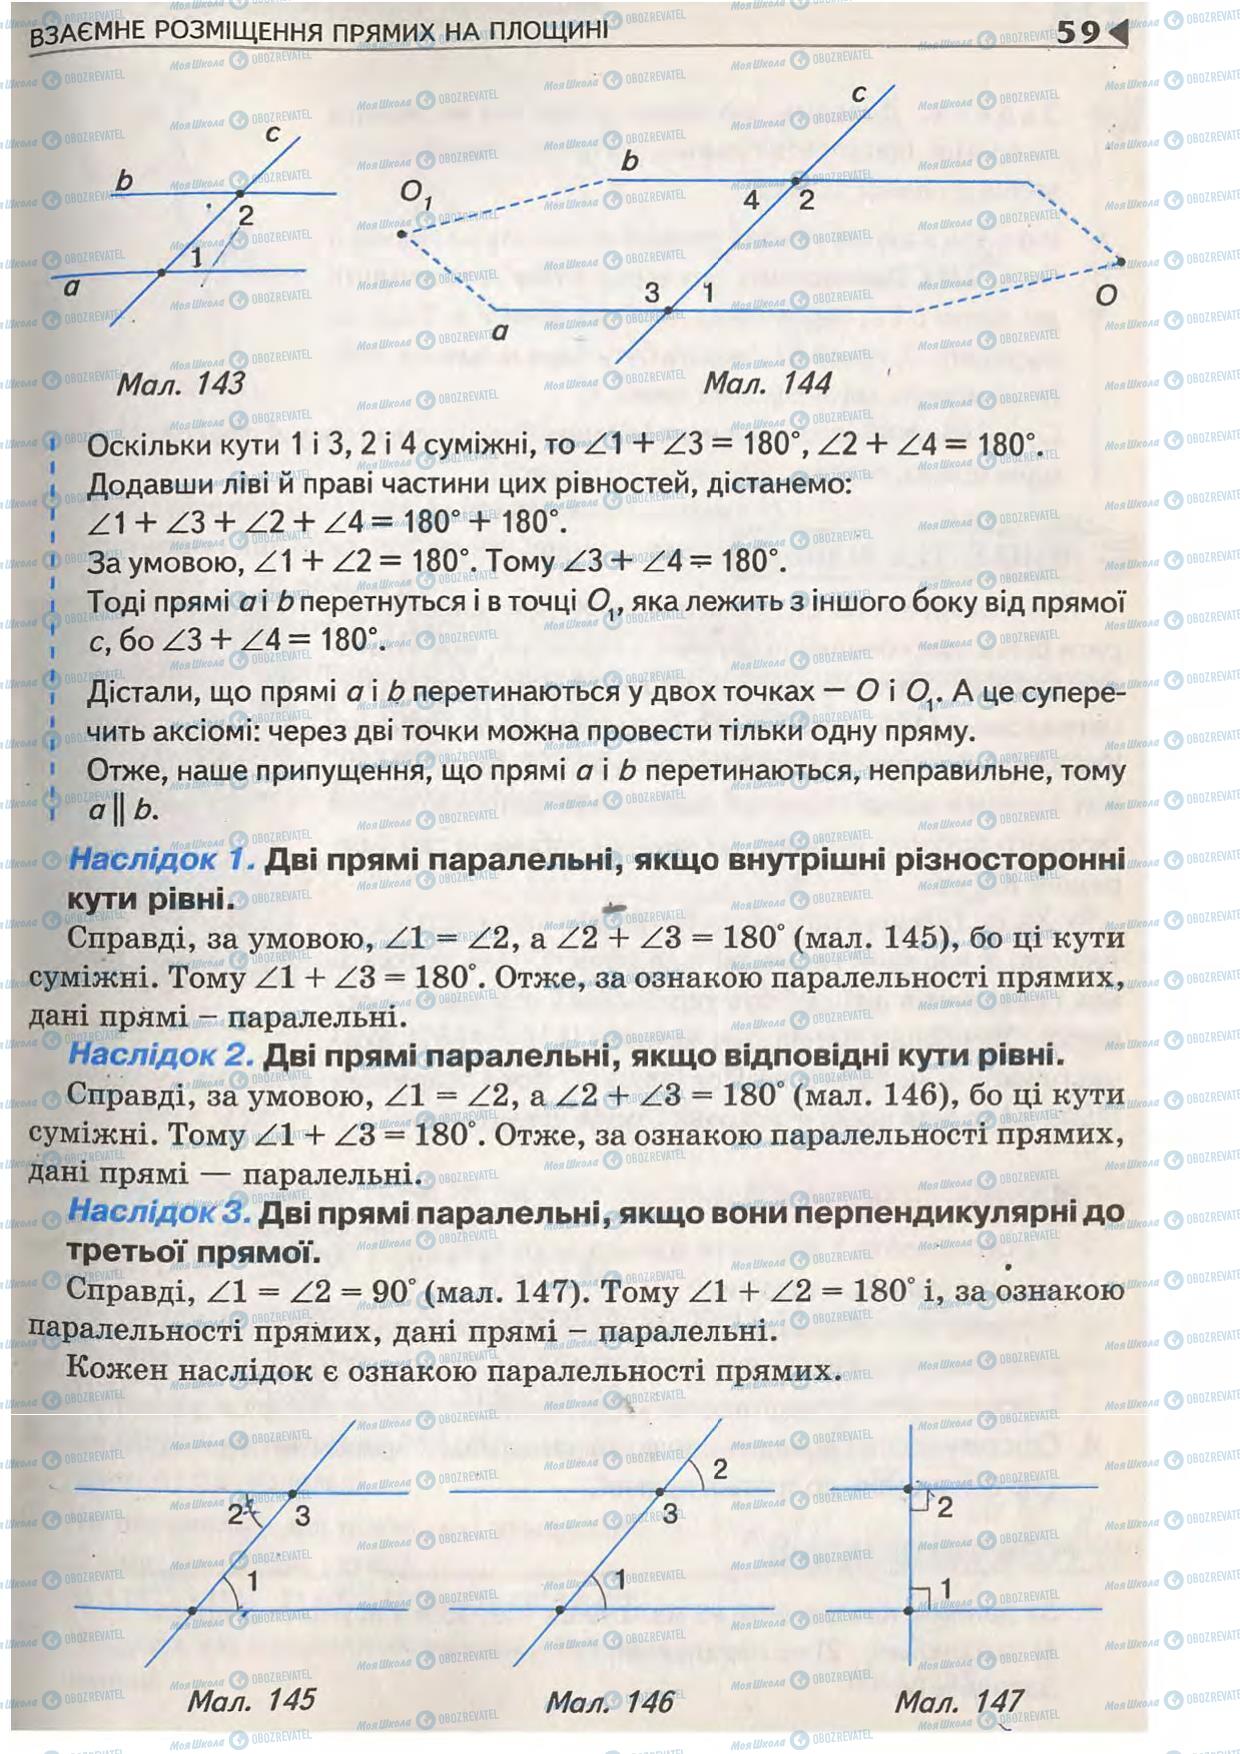 ВЗАЄМНЕ РОЗМІЩЕННЯ ПРЯМИХ НА ПЛОЩИНІ 59
b c 2 1 a
Мал. 143
O₁ b c 4 2 3 1 a O
Мал. 144
Оскільки кути 1 і 3, 2 і 4 суміжні, то ∠1 + ∠3 = 180°, ∠2 + ∠4 = 180°.
Додавши ліві й праві частини цих рівностей, дістанемо:
∠1 + ∠3 + ∠2 + ∠4 = 180° + 180°.
За умовою, ∠1 + ∠2 = 180°. Тому ∠3 + ∠4 = 180°.
Тоді прямі a і b перетнуться і в точці O₁, яка лежить з іншого боку від прямої
c, бо ∠3 + ∠4 = 180°.
Дістали, що прямі a і b перетинаються у двох точках – O і O₁. А це супере-
чить аксіомі: через дві точки можна провести тільки одну пряму.
Отже, наше припущення, що прямі a і b перетинаються, неправильне, тому
a || b.
Наслідок 1. Дві прямі паралельні, якщо внутрішні різносторонні
кути рівні.
Справді, за умовою, ∠1 = ∠2, а ∠2 + ∠3 = 180° (мал. 145), бо ці кути
суміжні. Тому ∠1 + ∠3 = 180°. Отже, за ознакою паралельності прямих,
дані прямі – паралельні.
Наслідок 2. Дві прямі паралельні, якщо відповідні кути рівні.
Справді, за умовою, ∠1 = ∠2, а ∠2 + ∠3 = 180° (мал. 146), бо ці кути
суміжні. Тому ∠1 + ∠3 = 180°. Отже, за ознакою паралельності прямих,
дані прямі — паралельні.
Наслідок 3. Дві прямі паралельні, якщо вони перпендикулярні до
третьої прямої.
Справді, ∠1 = ∠2 = 90° (мал. 147). Тому ∠1 + ∠2 = 180° і, за ознакою
паралельності прямих, дані прямі – паралельні.
Кожен наслідок є ознакою паралельності прямих.
2 3 1
Мал. 145
2 3 1
Мал. 146
2 1
Мал. 147
МояШкола OBOZREVATEL